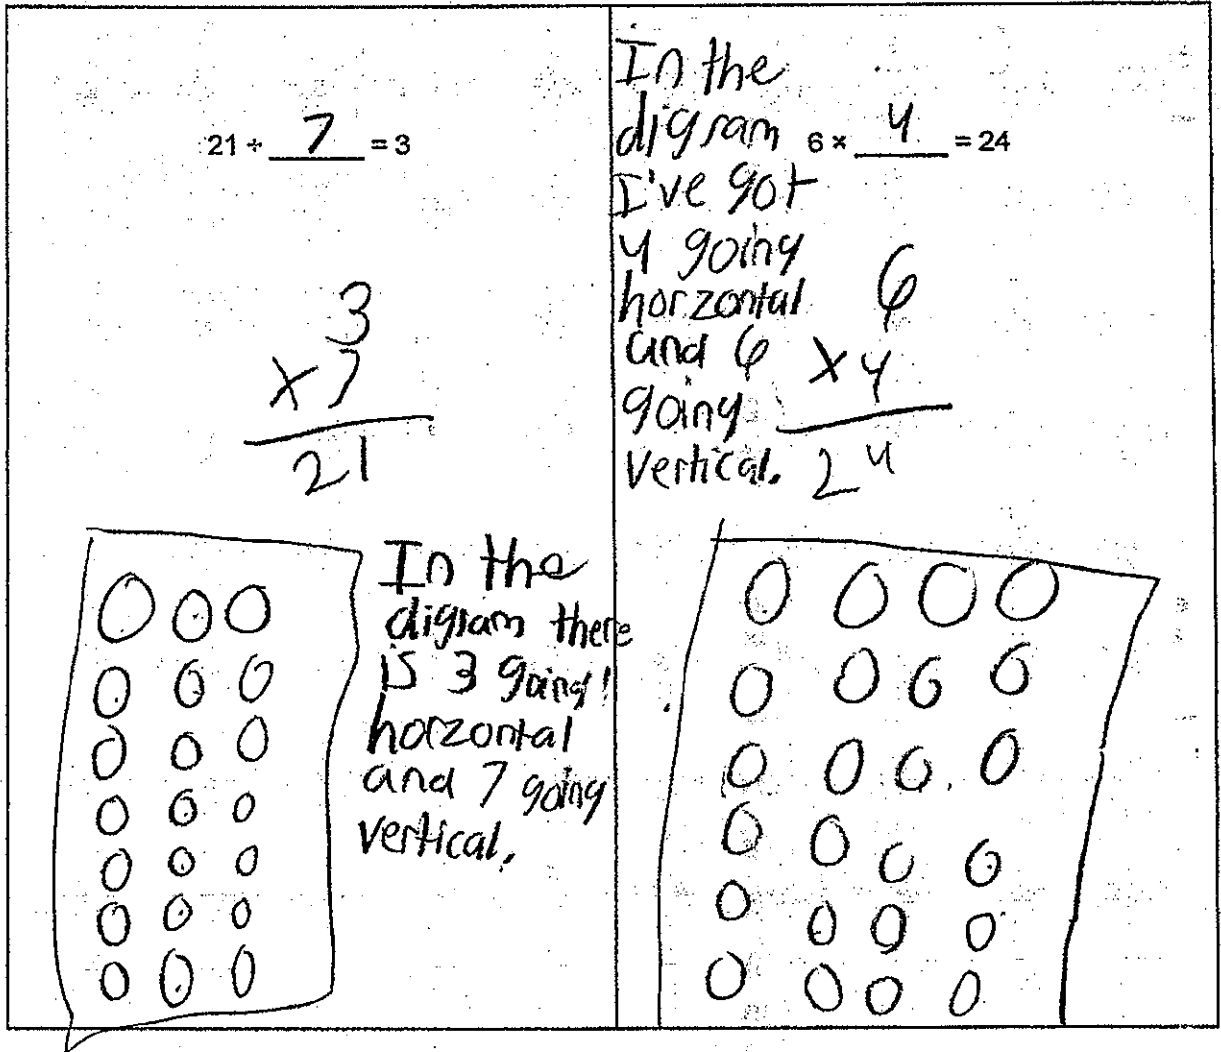 21 ÷ 7 = 3
3
x 7
21
In the
digram there
is 3 going
horzontal
and 7 going
vertical.
In the
digram
I've got
4 going
horzontal
and 6
going
vertical.
6 × 4 = 24
6
x 4
24